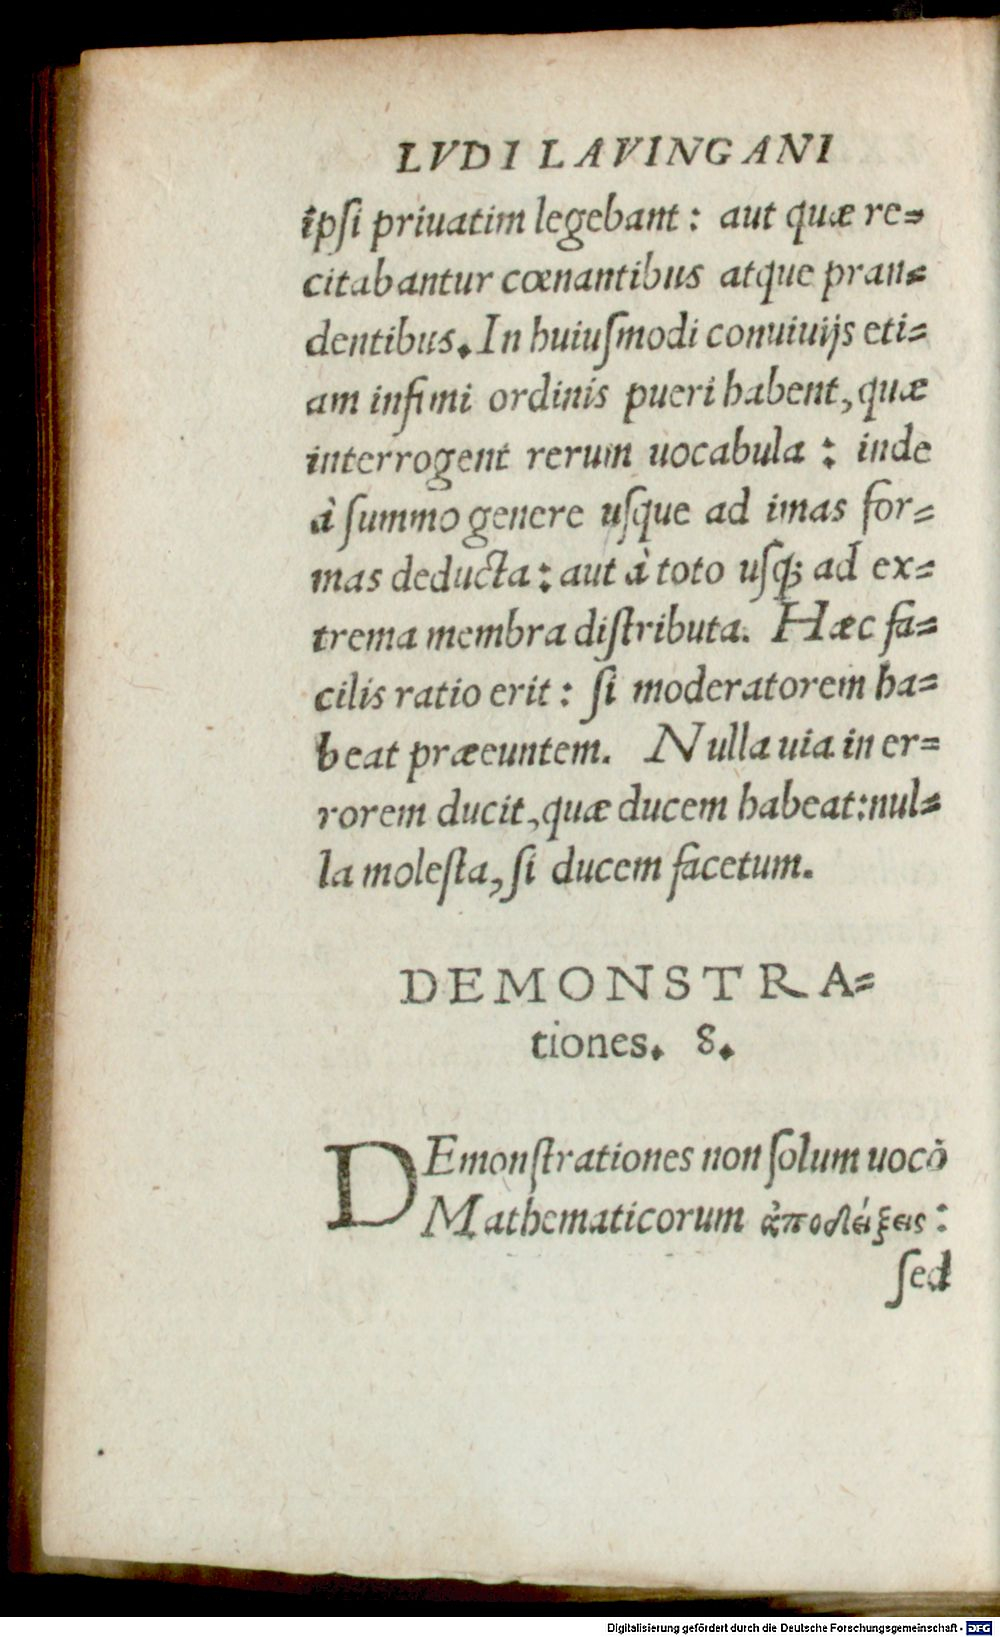 LVDI LAVINGANI
ipſi priuatim legebant: aut quæ re=
citabantur cœnantibus atque pran=
dentibus. In huiuſmodi conuiuijs eti=
am infimi ordinis pueri habent, quæ
interrogent rerum uocabula: inde
à ſummo genere uſque ad imas for=
mas deducta: aut à toto uſq; ad ex=
trema membra diſtributa. Hæc fa=
cilis ratio erit: ſi moderatorem ha=
beat præeuntem. Nulla uia in er=
rorem ducit, quæ ducem habeat: nul=
la moleſta, ſi ducem facetum.
DEMONSTRA=
tiones. 8.
DEmonſtrationes non ſolum uocō
Mathematicorum ἀποδείξεις:
ſed
Digitalisierung gefördert durch die Deutsche Forschungsgemeinschaft - DFG